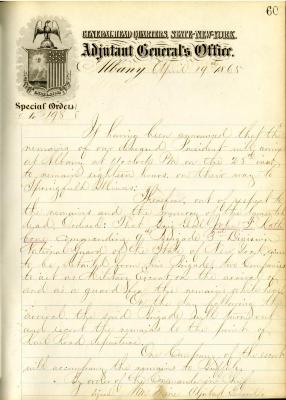 60
GENERAL HEAD QUARTERS, STATE OF NEW-YORK,
Adjutant General's Office,
Albany April 19th 1865
Special Orders
No 198
It having been announced that the
remains of our deceased President will arrive
at Albany at o'clock PM on the 25th inst.
to remain eighteen hours on their way to
Springfield Illinois:
Therefore, out of respect to
the remains and the memory of the
dead Ordered: That Gen. John F. Rath
bone, commanding 9th Brigade 3rd Division
National Guard of the State of New York, cause
to be detailed from his Brigade two Companies
to act as Military Escort on the arrival of
and as a guard for the remains while here.
On the day following the
arrival the said Brigade will turn out
and escort the remains to the point of
Rail Road departure.
One Company of the escort
will accompany the remains to Buffalo.
By order of the Commander in Chief
signed